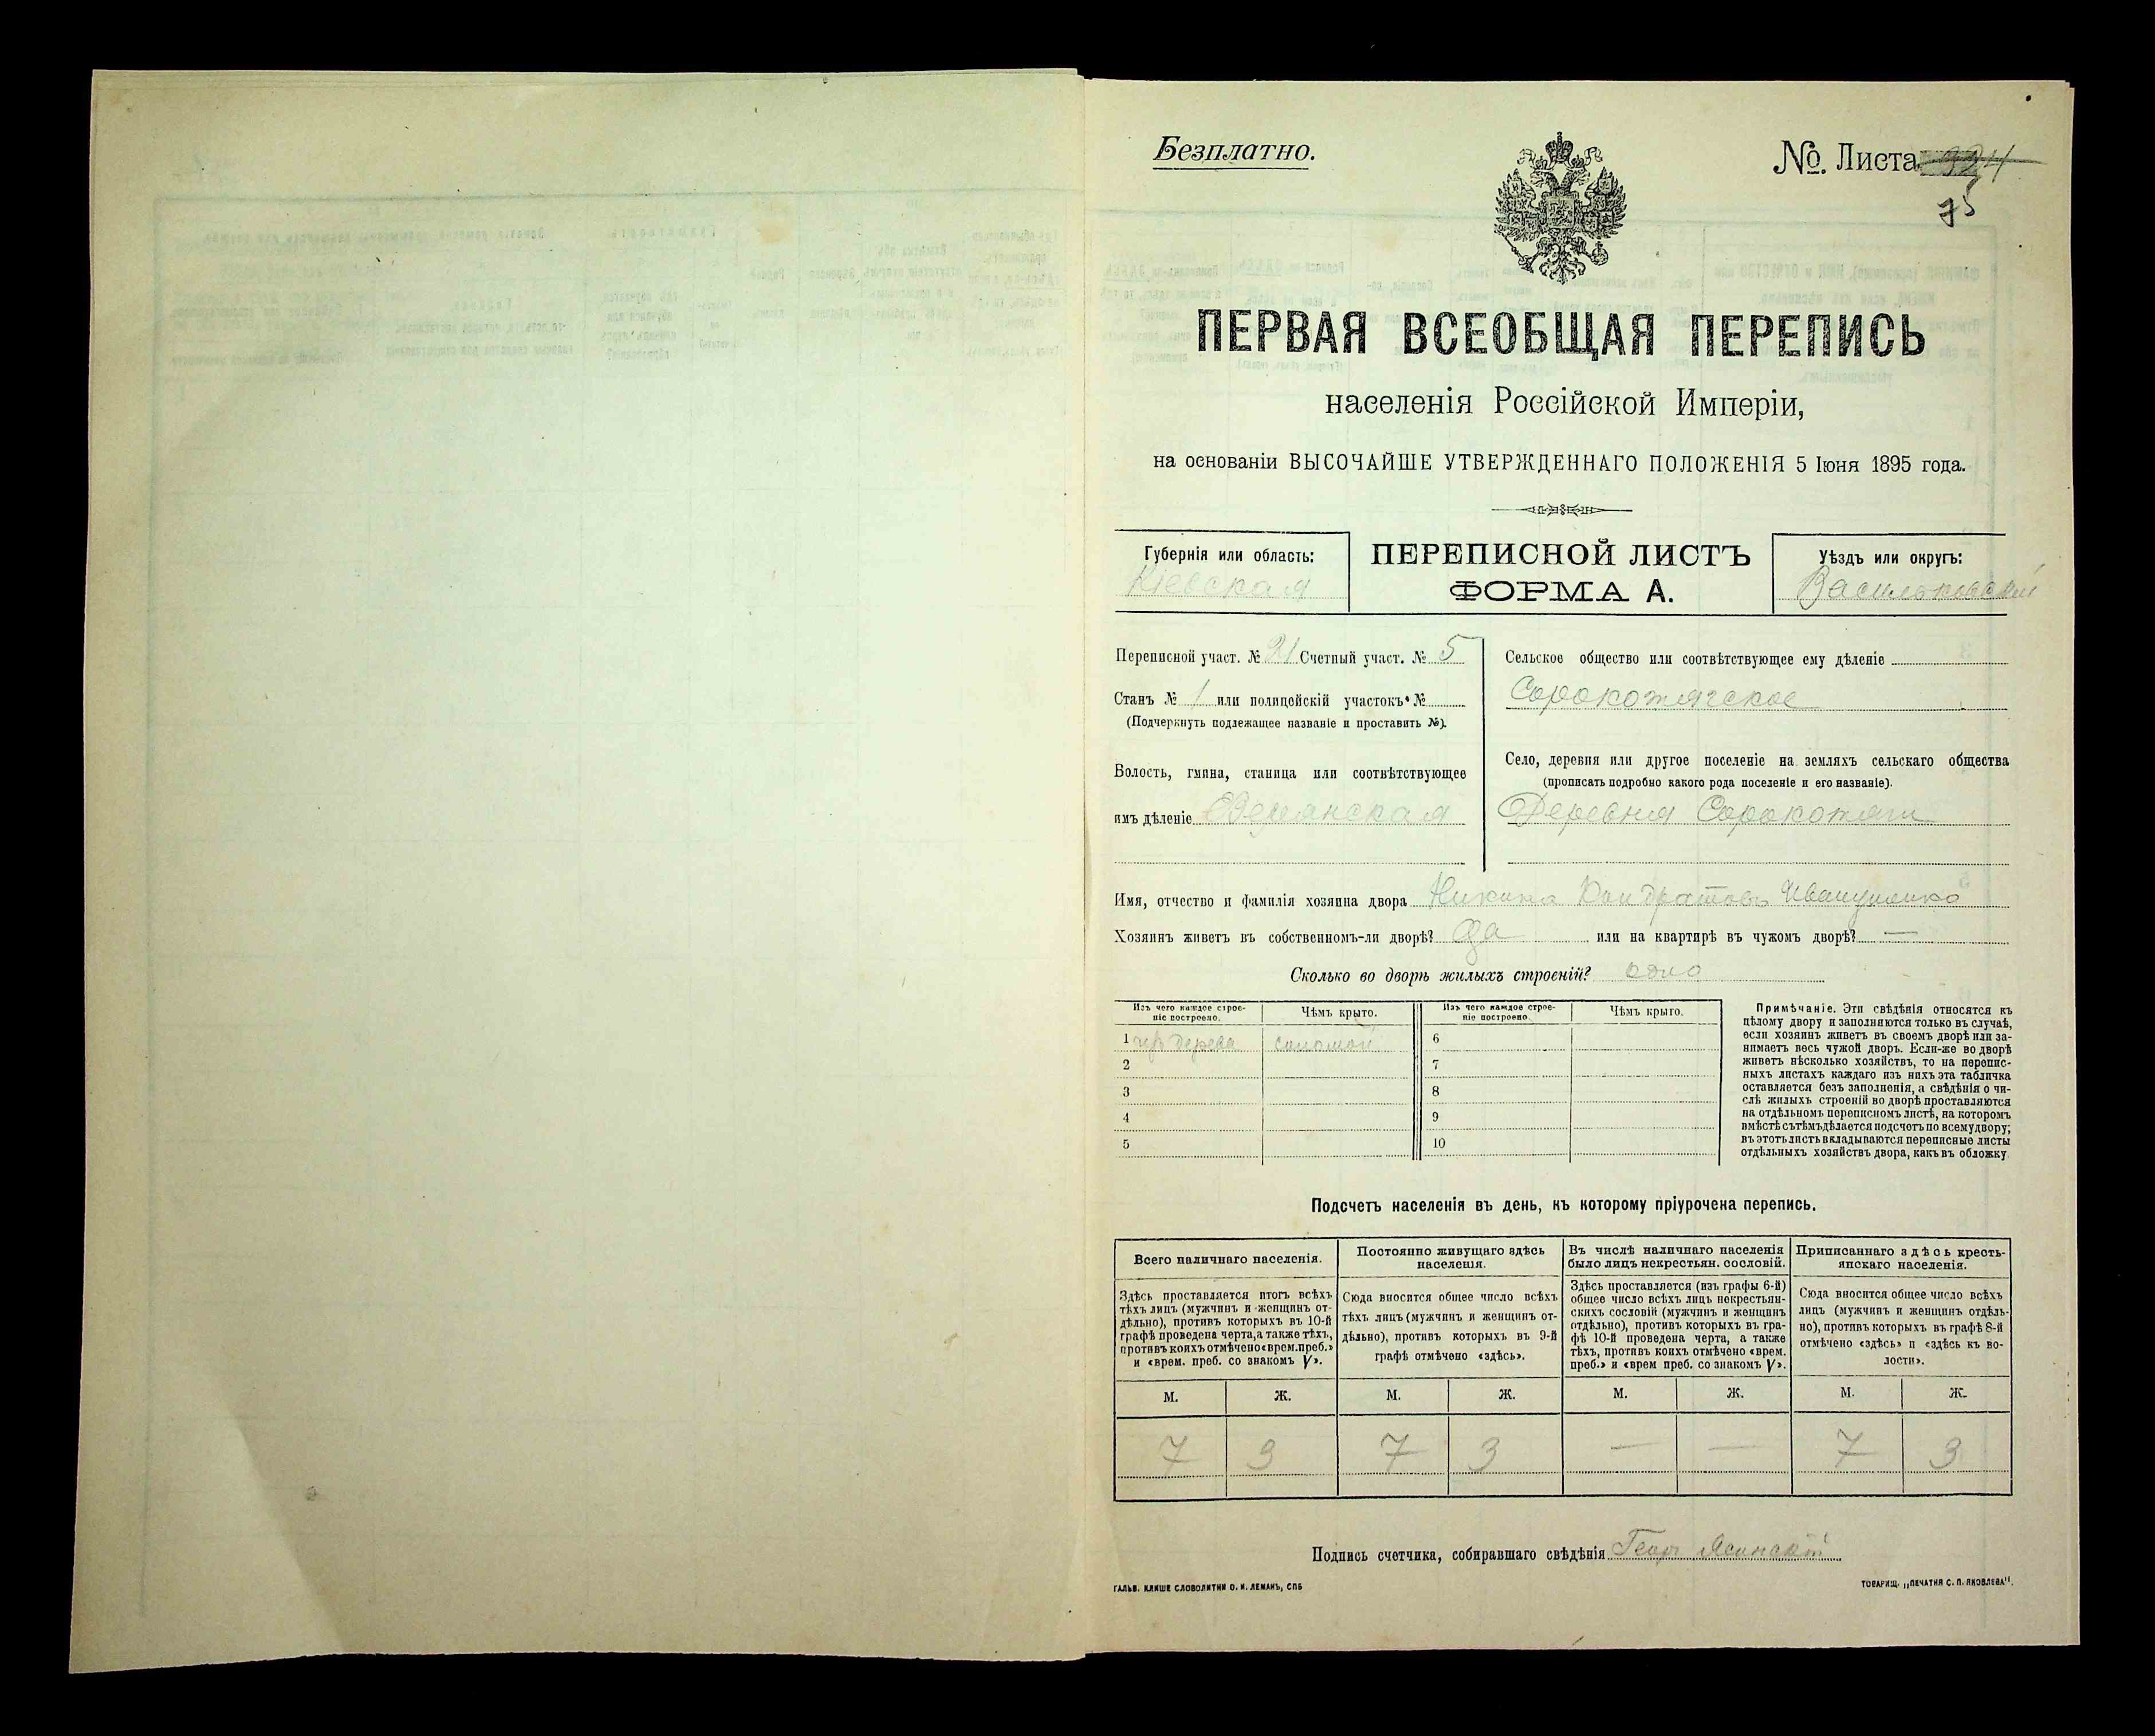 Безплатно.
№. Листа 324
75
ПЕРВАЯ ВСЕОБЩАЯ ПЕРЕПИСЬ
населенія Россійской Имперіи,
на основаніи ВЫСОЧАЙШЕ УТВЕРЖДЕННАГО ПОЛОЖЕНІЯ 5 Іюня 1895 года.
Губернія или область:
Кіевская
ПЕРЕПИСНОЙ ЛИСТЪ
ФОРМА А.
Уѣздъ или округъ:
Васильковскій
Переписной участ. № 21 Счетный участ. № 5
Станъ № 1 или полицейскій участокъ №
(Подчеркнуть подлежащее названіе и проставить №).
Волость, гмина, станица или соотвѣтствующее
имъ дѣленіе
Сельское общество или соотвѣтствующее ему дѣленіе
Сорокотягское
Село, деревня или другое поселеніе на земляхъ сельскаго общества
(прописать подробно какого рода поселеніе и его названіе).
Деревня Сорокотяги
Имя, отчество и фамилія хозяина двора Никита Кондратовъ Иванушенко
Хозяинъ живетъ въ собственномъ-ли дворѣ? Да или на квартирѣ въ чужомъ дворѣ? —
Сколько во дворѣ жилыхъ строеній? одно
Изъ чего каждое строе-
ніе построено.
Чѣмъ крыто.
Изъ чего каждое строе-
ніе построено.
Чѣмъ крыто.
1 изъ дерева соломой 6
2 7
3 8
4 9
5 10
Примѣчаніе. Эти свѣдѣнія относятся къ
цѣлому двору и заполняются только въ случаѣ,
если хозяинъ живетъ въ своемъ дворѣ или за-
нимаетъ весь чужой дворъ. Если-же во дворѣ
живетъ нѣсколько хозяйствъ, то на перепис-
ныхъ листахъ каждаго изъ нихъ эта табличка
оставляется безъ заполненія, а свѣдѣнія о чи-
слѣ жилыхъ строеній во дворѣ проставляются
на отдѣльномъ переписномъ листѣ, на которомъ
вмѣстѣ съ тѣмъ дѣлается подсчетъ по всему двору;
въ этотъ листъ вкладываются переписные листы
отдѣльныхъ хозяйствъ двора, какъ въ обложку.
Подсчетъ населенія въ день, къ которому пріурочена перепись.
Всего наличнаго населенія.
Здѣсь проставляется итогъ всѣхъ
тѣхъ лицъ (мужчинъ и женщинъ от-
дѣльно), противъ которыхъ въ 10-й
графѣ проведена черта, а также тѣхъ,
противъ коихъ отмѣчено «врем. преб.»
и «врем. преб. со знакомъ V».
Постоянно живущаго здѣсь
населенія.
Сюда вносится общее число всѣхъ
тѣхъ лицъ (мужчинъ и женщинъ от-
дѣльно), противъ которыхъ въ 9-й
графѣ отмѣчено «здѣсь».
Въ числѣ наличнаго населенія
было лицъ некрестьян. сословій.
Здѣсь проставляется (изъ графы 6-й)
общее число всѣхъ лицъ некрестьян-
скихъ сословій (мужчинъ и женщинъ
отдѣльно), противъ которыхъ въ гра-
фѣ 10-й проведена черта, а также
тѣхъ, противъ коихъ отмѣчено «врем.
преб.» и «врем преб. со знакомъ V».
Приписаннаго здѣсь кресть-
янскаго населенія.
Сюда вносится общее число всѣхъ
лицъ (мужчинъ и женщинъ отдѣль-
но), противъ которыхъ въ графѣ 8-й
отмѣчено «здѣсь» и «здѣсь къ во-
лости».
М. Ж. М. Ж. М. Ж. М. Ж.
7 3 7 3 — — 7 3
Подпись счетчика, собиравшаго свѣдѣнія Георг Ясинскій
ГАЛЬВ. КЛИШЕ СЛОВОЛИТНИ О. И. ЛЕМАНЪ, СПБ
ТОВАРИЩ. „ПЕЧАТНЯ С. П. ЯКОВЛЕВА".